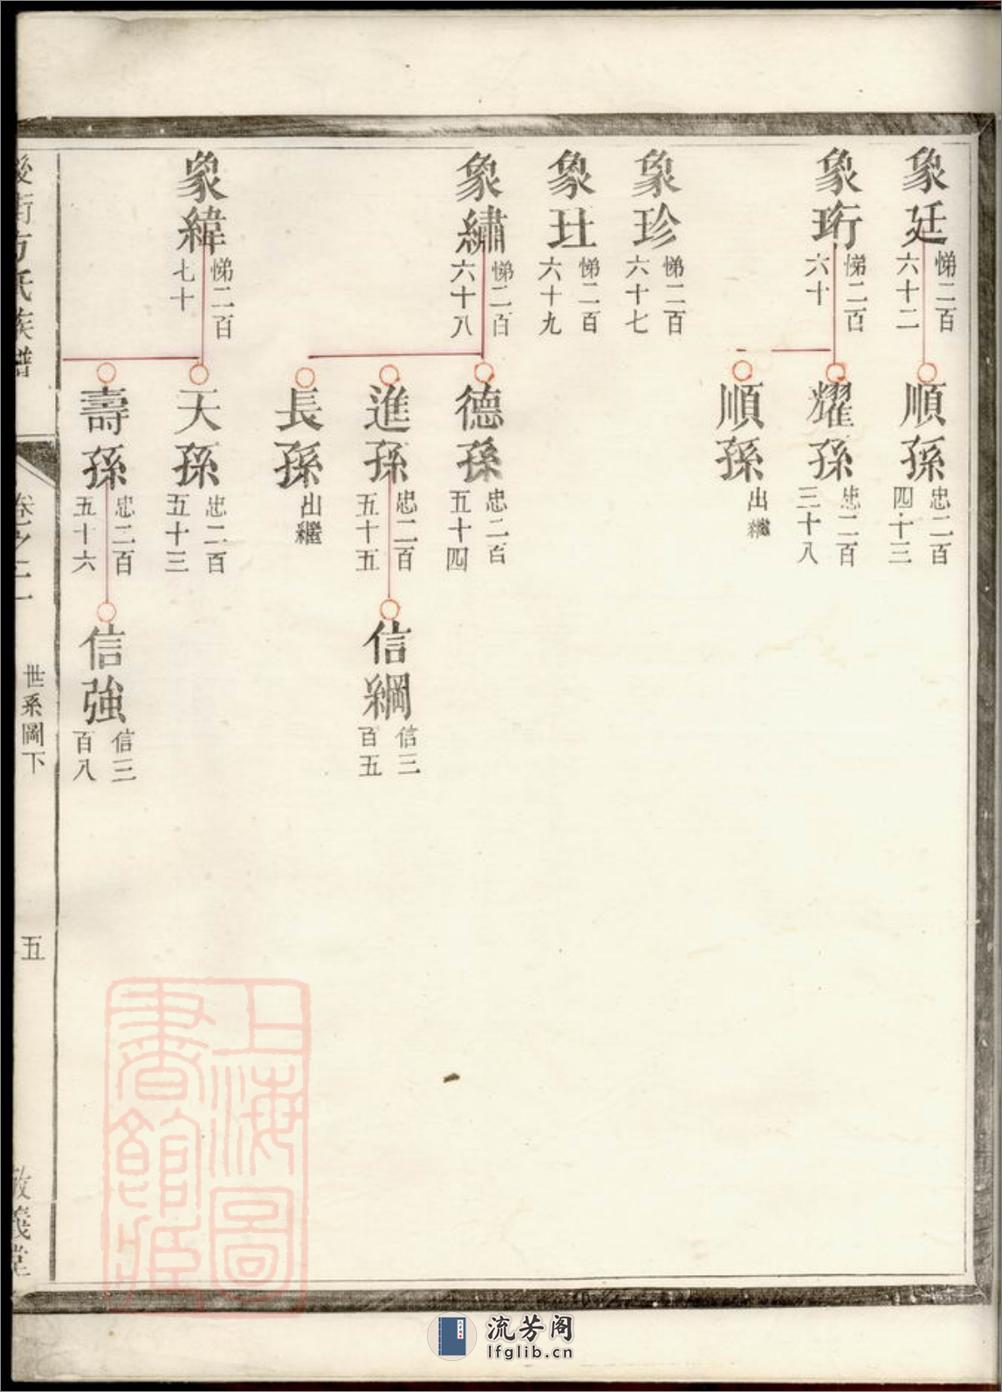 象廷
悌二百
六十二
象珩
悌二百
六十
象珍
悌二百
六十七
象玨
悌二百
六十九
象繡
悌二百
六十八
象緯
悌二百
七十
順孫
忠二百
四十三
耀孫
忠二百
三十八
順孫
出繼
德孫
忠二百
五十四
進孫
忠二百
五十五
長孫
出繼
天孫
忠二百
五十三
壽孫
忠二百
五十六
信綱
信三
百五
信強
信三
百八
後街方氏族譜
卷之二
世系圖下
五
敦義堂
上海圖
書館藏
流芳阁
lfglib.cn